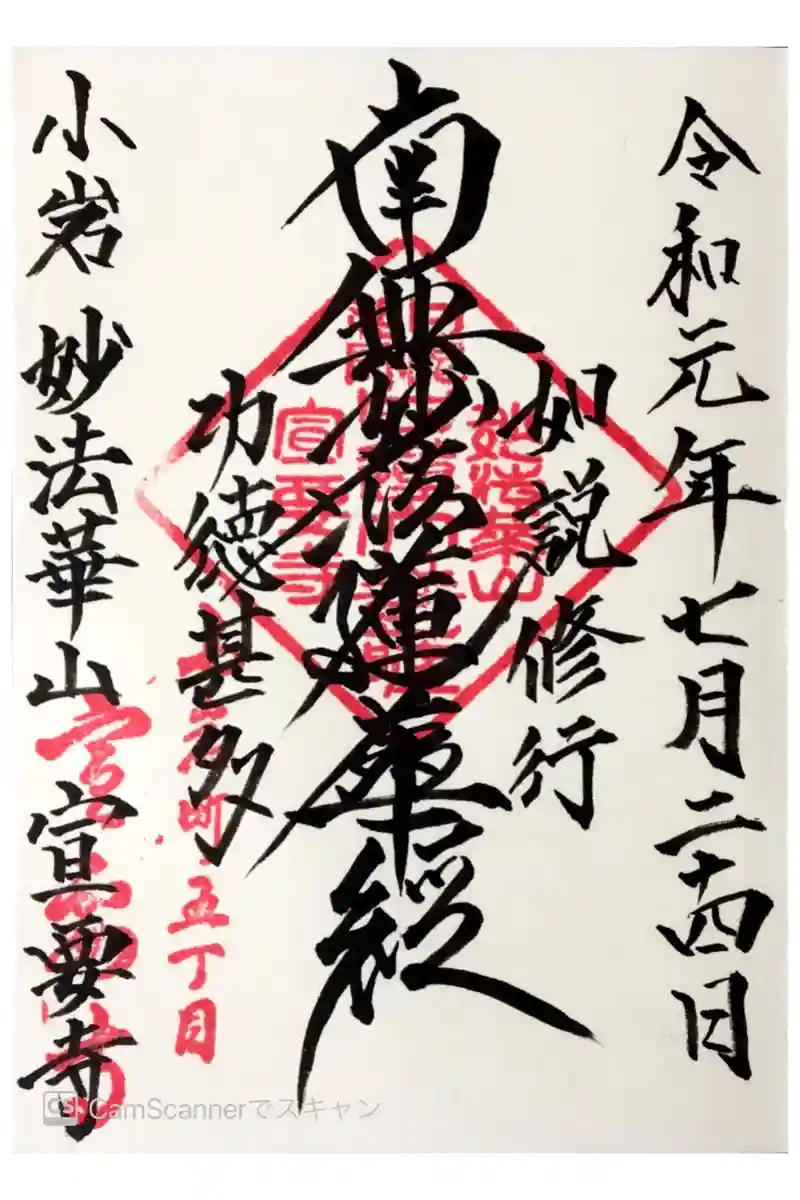 令和元年七月二十四日
如説修行
南無妙法蓮華経
功徳甚多
小岩 妙法華山 宣要寺
妙法華山
宣要寺
五丁目
CamScannerでスキャン